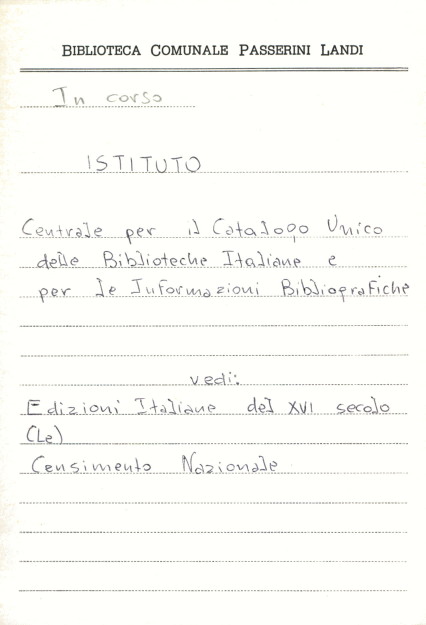 BIBLIOTECA COMUNALE PASSERINI LANDI
In corso
ISTITUTO
Centrale per il Catalogo Unico
delle Biblioteche Italiane e
per le Informazioni Bibliografiche
vedi:
Edizioni Italiane del XVI secolo
(Le)
Censimento Nazionale